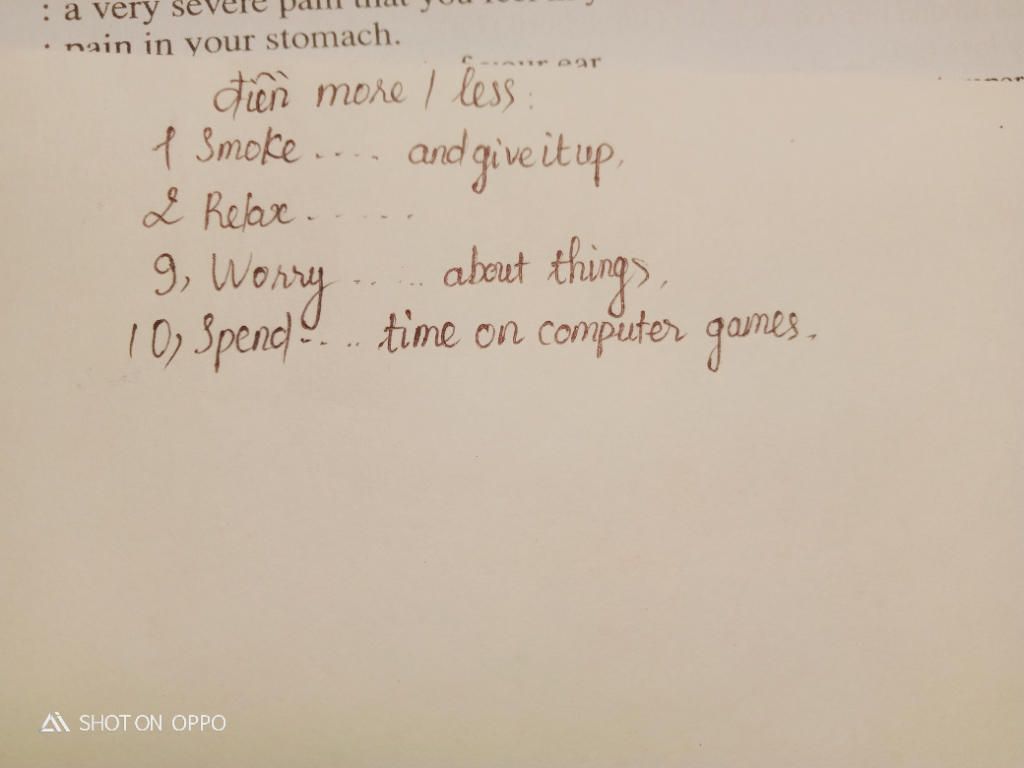 : a very severe pain that you feel
: pain in your stomach.
ear
điền more / less :
1 Smoke .... and give it up.
2 Relax ......
9, Worry ..... about things,
10, Spend .... time on computer games.
SHOT ON OPPO